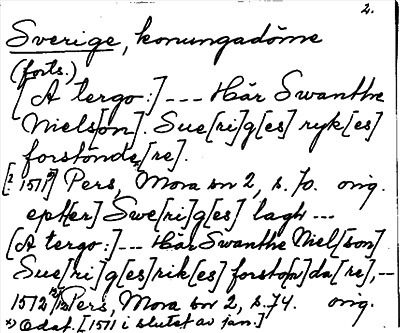 2.
Sverige, konungadöme
(forts.)
[A tergo:] --- Här Swanthe
Niels[on]. Sue[ri]g[es] ryk[es]
forstonde[re].
[? 1511] x) Pers, Mora sn 2, s. 70. orig.
epth[er] Swe[ri]g[es] lagh ---
[A tergo:] --- Här Swanthe Niel[son]
Sue[ri]g[es] rik[es] forsto[n]da[re], --
1512 Pers, Mora sn 2, s. 74. orig.
x) Odat. [1511 i slutet av jan.]